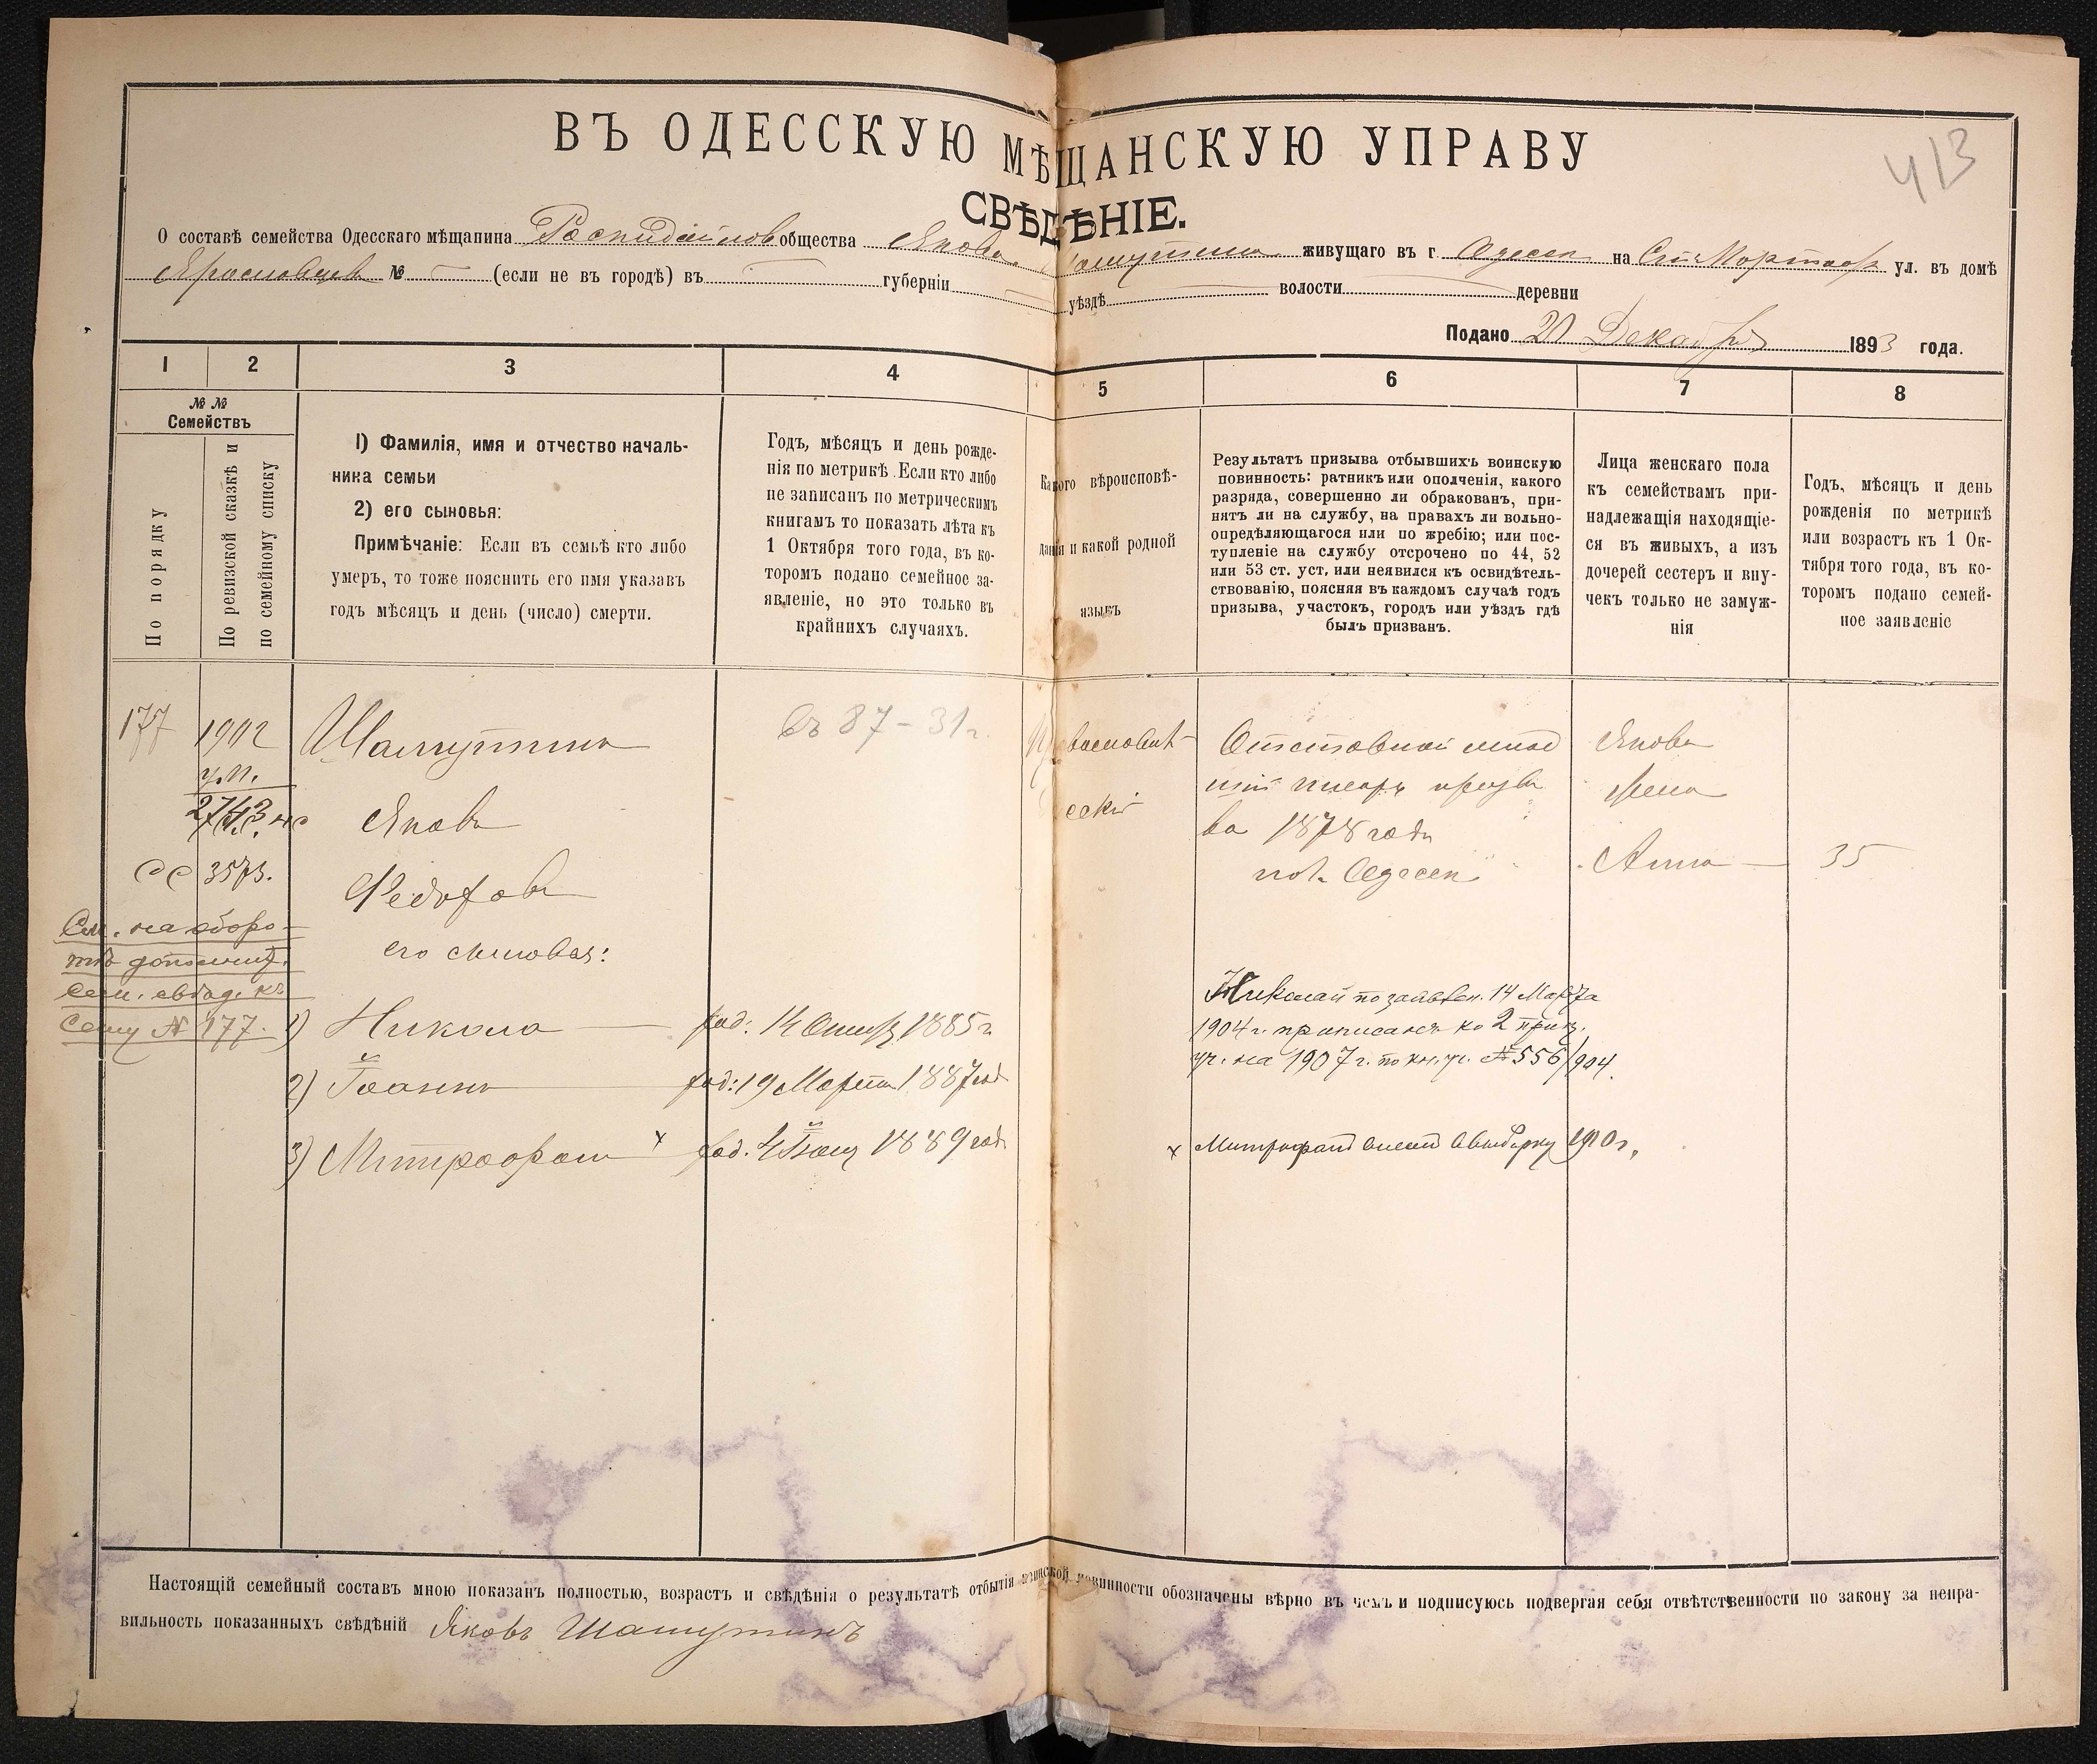 413
ВЪ ОДЕССКУЮ МѢЩАНСКУЮ УПРАВУ
СВѢДѢНІЕ.
О составѣ семейства Одесскаго мѣщанина общества Якова живущаго въ г. Одессѣ на ул. въ домѣ
№ — (если не въ городѣ) въ — губерніи — уѣздѣ — волости — деревни
Подано Декабря 1893 года.
1 2 3 4 5 6 7 8
№№ Семействъ
По порядку
По ревизской сказкѣ и
по семейному списку
1) Фамилія, имя и отчество началь-
ника семьи
2) его сыновья:
Примѣчаніе: Если въ семьѣ кто либо
умеръ, то тоже пояснить его имя указавъ
годъ мѣсяцъ и день (число) смерти.
Годъ, мѣсяцъ и день рожде-
нія по метрикѣ. Если кто либо
не записанъ по метрическимъ
книгамъ то показать лѣта къ
1 Октября того года, въ ко-
торомъ подано семейное за-
явленіе, но это только въ
крайнихъ случаяхъ.
Какого вѣроисповѣ-
данія и какой родной
языкъ
Результатъ призыва отбывшихъ воинскую
повинность: ратникъ или ополченія, какого
разряда, совершенно ли обракованъ, при-
нятъ ли на службу, на правахъ ли вольно-
опредѣляющагося или по жребію; или пос-
тупленіе на службу отсрочено по 44, 52
или 53 ст. уст. или неявился къ освидѣтель-
ствованію, поясняя въ каждомъ случаѣ годъ
призыва, участокъ, городъ или уѣздъ гдѣ
былъ призванъ.
Лица женскаго пола
къ семействамъ при-
надлежащія находящіе-
ся въ живыхъ, а изъ
дочерей сестеръ и вну-
чекъ только не замуж-
нія
Годъ, мѣсяцъ и день
рожденія по метрикѣ
или возрастъ къ 1 Ок-
тября того года, въ ко-
торомъ подано семей-
ное заявленіе
177 1902 Шашутинъ
съ 87-31 г.
2743
Яковъ
3573.
Федоровъ
его сыновья:
См. на оборо-
тѣ дополнит.
сем. свѣд. къ
сему № 177.
1) Никола — род: 1885 г
2) Іоаннъ род: 19 Марта 1887 год
3) Митрофанъ × род. 4 Іюня 1889 год
Отставной млад
шій писарь призы
ва 1878 года
по г. Одессѣ
Якова
жена
Анна — 35
Николай по заявлен. 14 Марта
1904 г. приписанъ ко 2 приз.
уч. на 1907 г. по кн. уч. № 556/904.
× Митрофанъ 1910 г.
Настоящій семейный составъ мною показанъ полностью, возрастъ и свѣдѣнія о результатѣ отбытія воинской повинности обозначены вѣрно въ чемъ и подписуюсь подвергая себя отвѣтственности по закону за непра-
вильность показанныхъ свѣдѣній Яковъ Шашутинъ